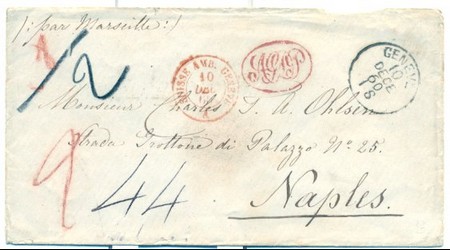 (: par Marseille :)
1/2
SUISSE AMB. GENÈVE
10
DEC.
GENEVE
10
DECE
60
1 S
Monsieur Charles T. A. Ohlsen
Strada Trottone di Palazzo No. 25.
9
44
Naples.